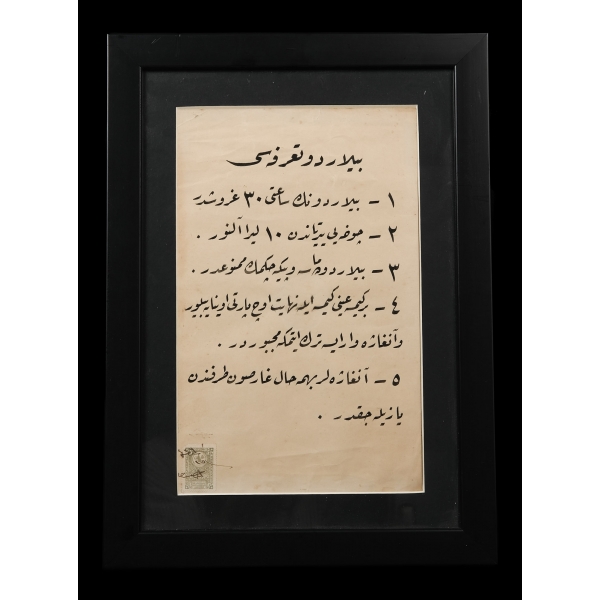 بیلاردو تعرفه‌سی
۱ – بیلاردونك ساعتی ۳۰ غروشدر
۲ – چوخه‌یی ییرتاندن ۱۰ لیرا آلنور .
۳ – بیلاردوده ماسه وپیكه چكمك ممنوعدر .
٤ – بر كیمسه عینی كیمسه ایله نهایت اوچ پارتی اوینایه‌بیلور
وآنغاژه وار ایسه ترك ایتمكه مجبوردر .
٥ – آنغاژه‌لر بهمه‌حال غارصون طرفندن
یازیله‌جقدر .